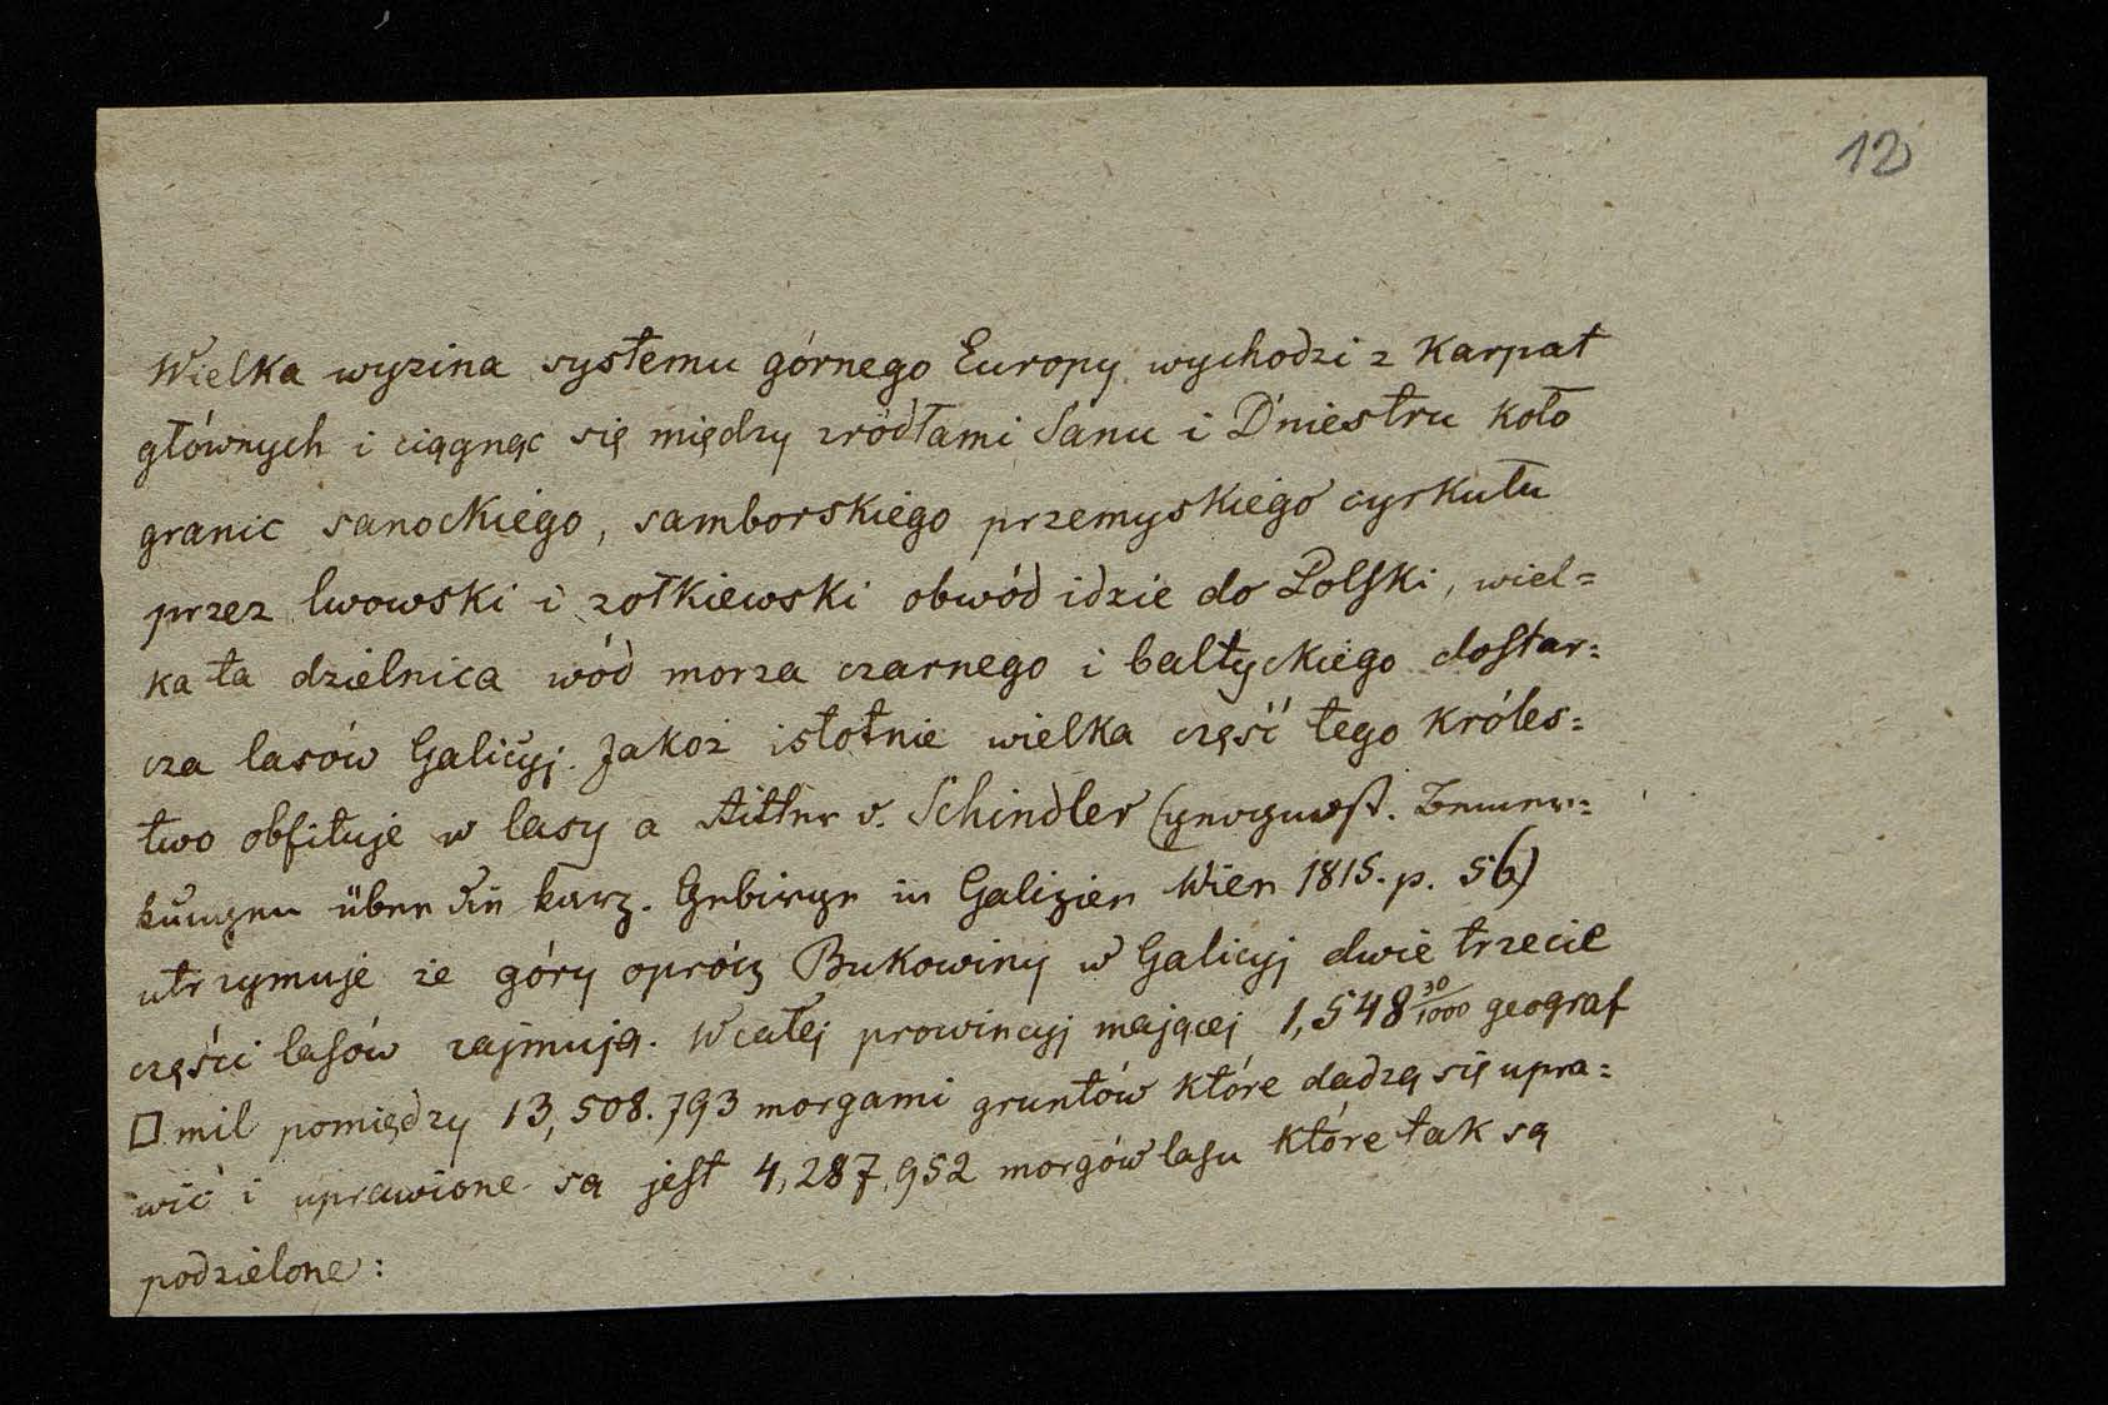 12
Wielka wyzina systemu górnego Europy wychodzi z Karpat
głównych i ciągnąc się między zródłami Sanu i Dniestru koło
granic sanockiego, samborskiego przemyskiego cyrkułu
przez lwowski i zołkiewski obwód idzie do Polski, wiel=
ka ta dzielnica wód morza czarnego i bałtyckiego dostar=
cza lasów Galicyj. Jakoż istotnie wielka część tego Króles=
two obfituje w lasy a Ritter v. Schindler (geognost. Bemer=
kungen über die karp. Gebirge in Galizien Wien 1815. p. 56)
utrzymuje że góry oprócz Bukowiny w Galicyj dwie trzecie
części lasów zajmują. W całej prowincyj mającej 1,548 30/1000 geograf
□ mil pomiędzy 13,508.793 morgami gruntów które dadzą się upra=
wić i uprawione są jest 4,287,952 morgów lasu które tak są
podzielone: